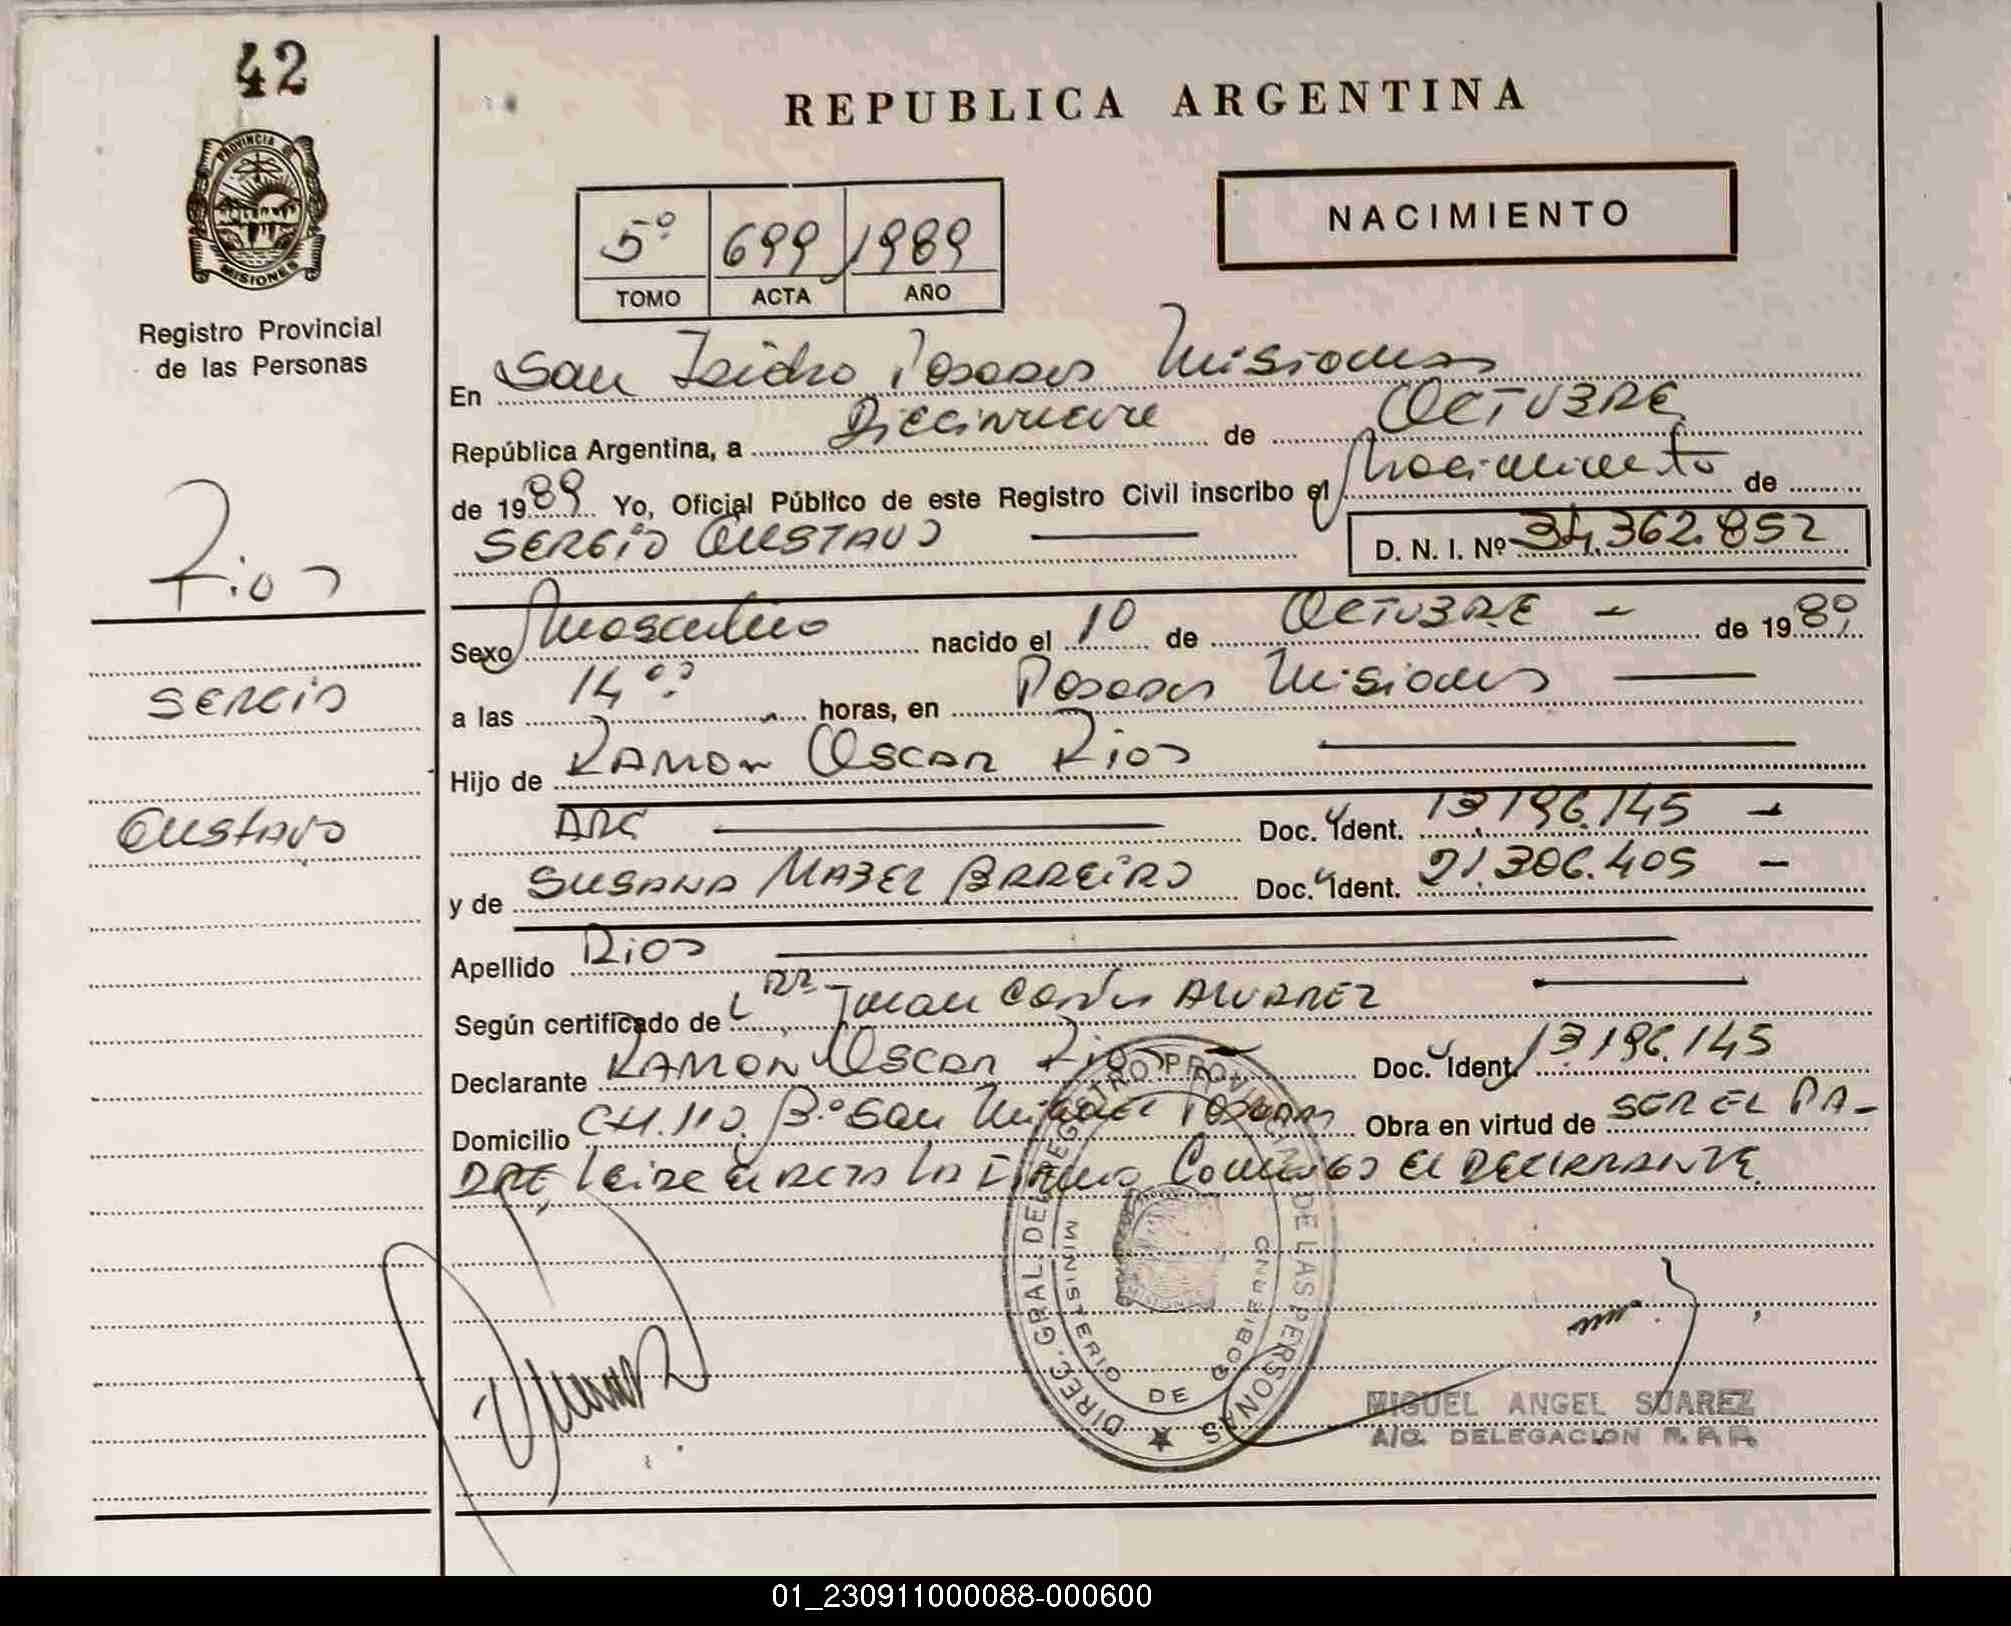 42
REPUBLICA ARGENTINA
PROVINCIA DE
MISIONES
Registro Provincial
de las Personas
NACIMIENTO
5º 699 1989
TOMO ACTA AÑO
En San Isidro Posadas Misiones
República Argentina, a Diecinueve de OCTUBRE
de 1989 Yo, Oficial Público de este Registro Civil inscribo el Nacimiento de
SERGIO GUSTAVO D. N. I. Nº 34.362.852
Rios
Sexo Masculino nacido el 10 de OCTUBRE de 1989
SERGIO
a las 14 horas, en Posadas Misiones
Hijo de RAMON OSCAR Rios
GUSTAVO
ARG Doc. Ident. 13196.145
y de SUSANA MABEL BARREIRO Doc. Ident. 21.306.405
Apellido Rios
Según certificado de Juan Carlos ALVAREZ
Declarante RAMON OSCAR Rios Doc. Ident. 13196.145
Domicilio CH.110. Bº San Miguel Posadas Obra en virtud de SER EL PA-
DRE, Leida el Acta La Firma Conmigo El DECLARANTE
DIREC. GRAL. DEL REGISTRO PROVINCIAL DE LAS PERSONAS
MINISTERIO DE GOBIERNO
MIGUEL ANGEL SUAREZ
A/C. DELEGACION R. P. P.
01_230911000088-000600